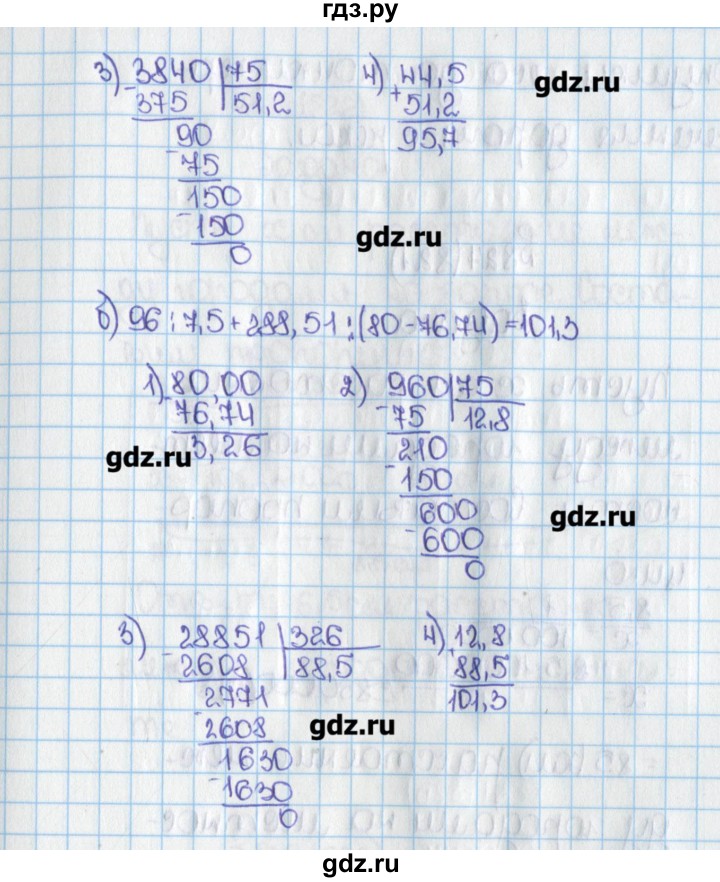 гдз.ру
3) 3840 75
375 51,2
90
75
150
150
0
4) 44,5
+ 51,2
95,7
gdz.ru
gdz.ru
б) 96 : 7,5 + 288,51 : (80 - 76,74) = 101,3
1) 80,00
76,74
3,26
gdz.ru
2) 960 75
75 12,8
210
150
600
600
0
gdz.ru
3) 28851 326
2608 88,5
2771
2608
1630
1630
0
4) 12,8
88,5
101,3
gdz.ru
gdz.ru